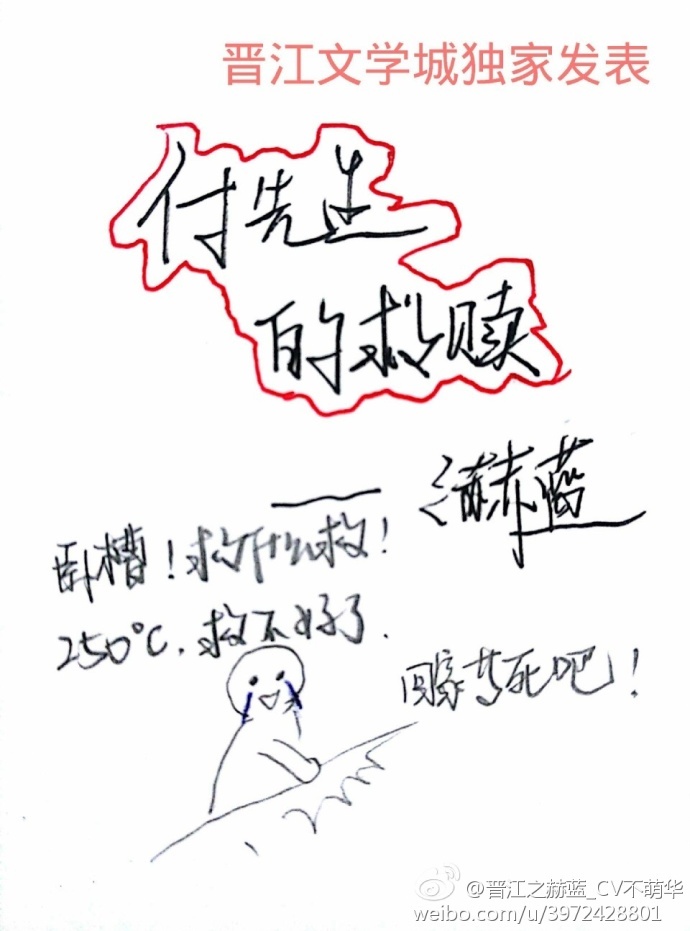 晋江文学城独家发表
付先生
的救赎
—— 赫蓝
卧槽！救什么救！
250℃. 救不好了.
回家等死吧！
@晋江之赫蓝_CV不萌华
weibo.com/u/3972428801